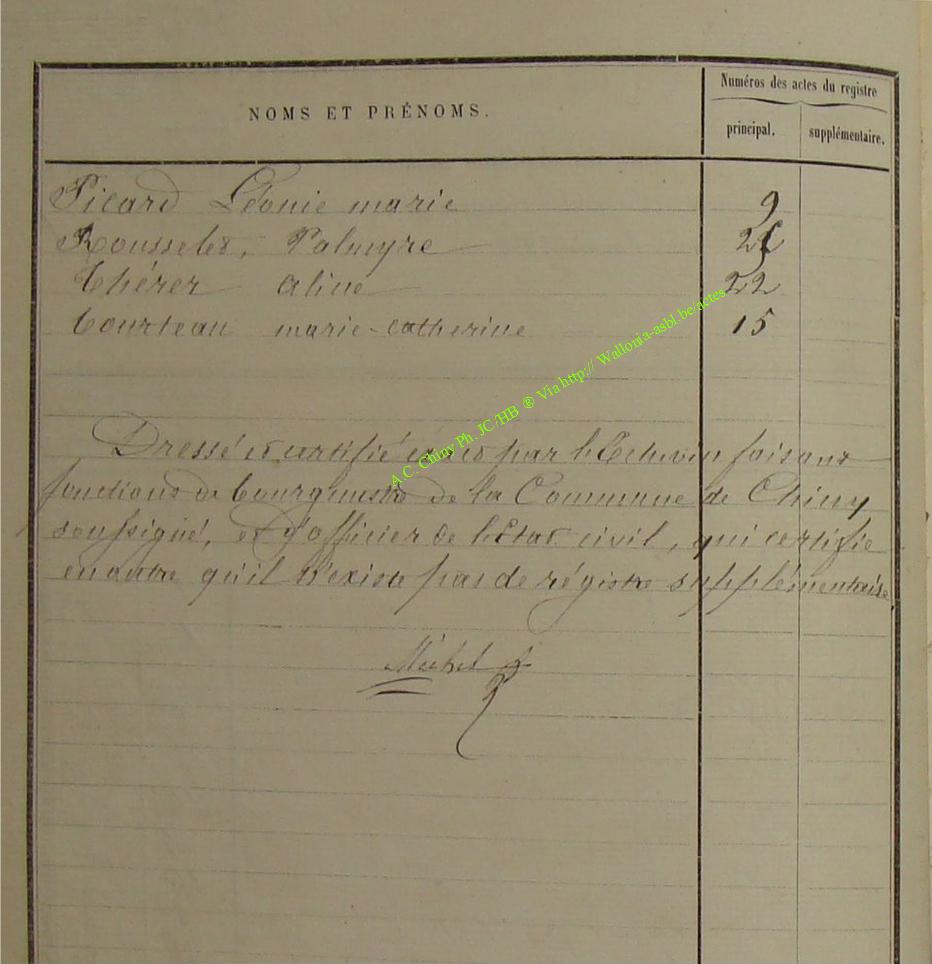 Numéros des actes du registre
NOMS ET PRÉNOMS.
principal. supplémentaire.
Picard Léonie marie 9
Rousselet, Palmyre
Thérer Aline 22
Courteau marie-catherine 15
A.C. Chiny Ph. JC/HB ® Via http:// Wallonia-asbl.be/actes
Dressé et certifié exact par l'Echevin faisant
fonctions de bourgmestre de la Commune de Chiny
soussigné, et d'officier de l'Etat civil, qui certifie
en outre qu'il n'existe pas de régistre supplémentaire
Michel